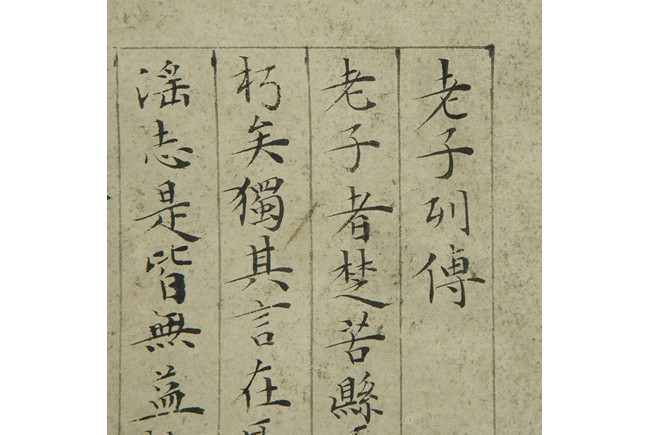 老子列傳
老子者楚苦縣
朽矣獨其言在
淫志是皆無益